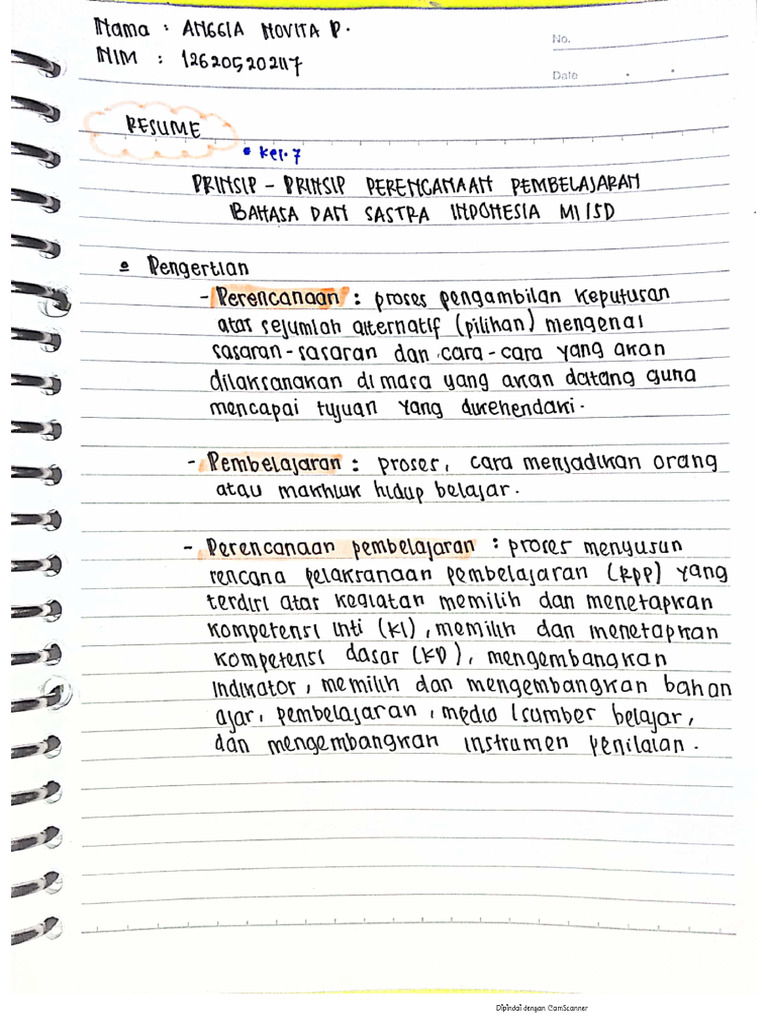 Nama : ANGGIA NOVITA P.
NIM : 126205202117
No.
Date
RESUME
• Kel. 7
PRINSIP - PRINSIP PERENCANAAN PEMBELAJARAN
BAHASA DAN SASTRA INDONESIA MI/SD
Pengertian
- Perencanaan : proses pengambilan keputusan
atas sejumlah alternatif (pilihan) mengenai
sasaran-sasaran dan cara-cara yang akan
dilaksanakan di masa yang akan datang guna
mencapai tujuan yang dikehendaki.
- Pembelajaran : proses, cara menjadikan orang
atau makhluk hidup belajar.
- Perencanaan pembelajaran : proses menyusun
rencana pelaksanaan pembelajaran (RPP) yang
terdiri atas kegiatan memilih dan menetapkan
kompetensi inti (KI), memilih dan menetapkan
kompetensi dasar (KD), mengembangkan
indikator, memilih dan mengembangkan bahan
ajar, pembelajaran, media/sumber belajar,
dan mengembangkan instrumen penilaian.
Dipindai dengan CamScanner